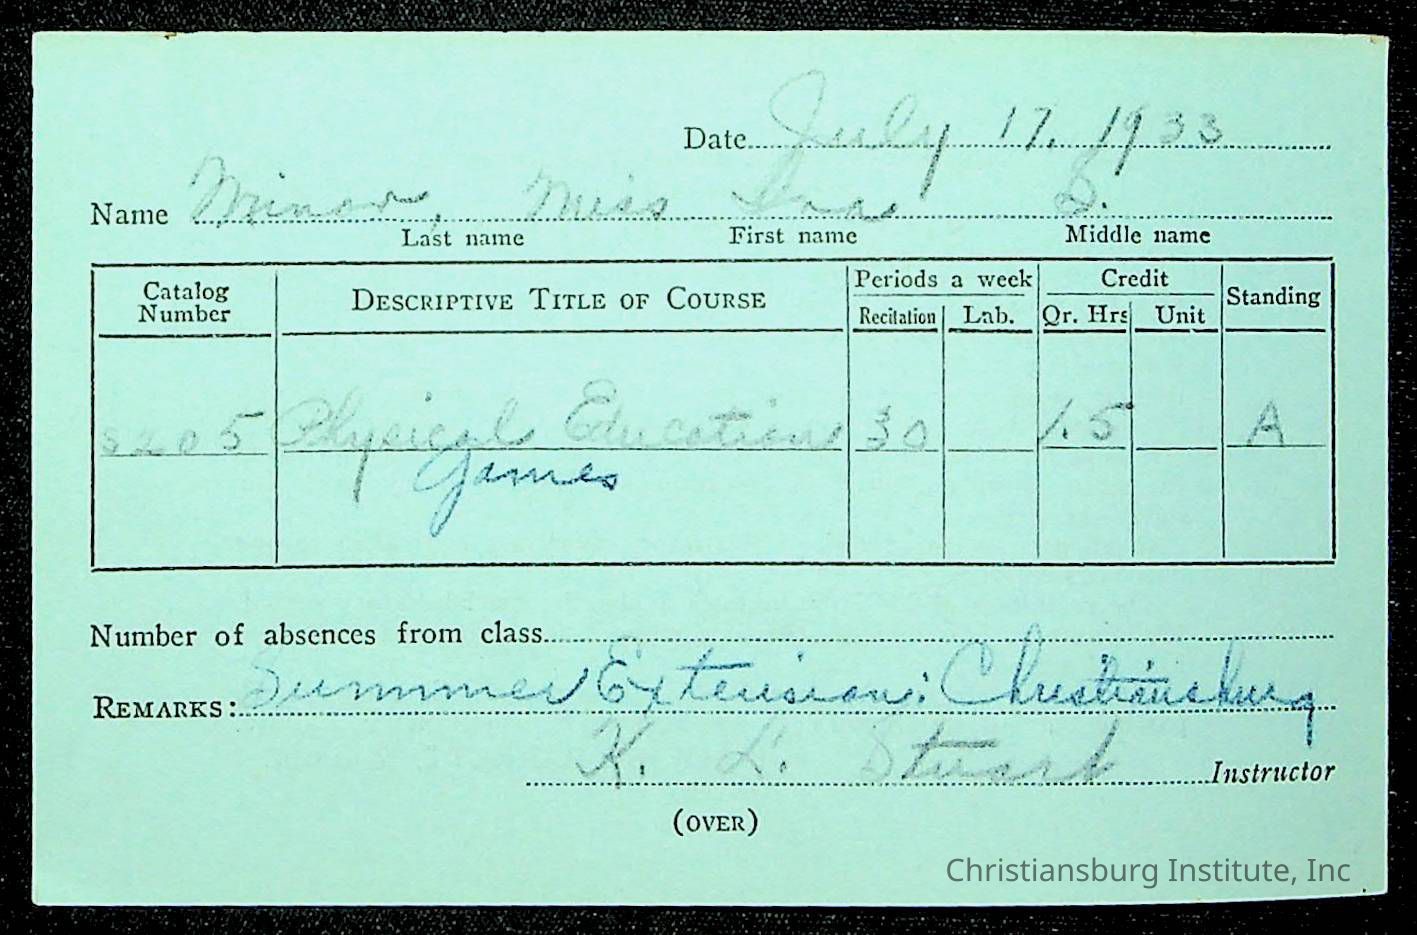 Date July 17, 1933
Name Minor, Miss Ira D.
Last name First name Middle name
Catalog Number DESCRIPTIVE TITLE OF COURSE Periods a week Credit Standing
Recitation Lab. Qr. Hrs Unit
S205 Physical Education 30 1.5 A
Games
Number of absences from class
REMARKS: Summer Extension: Christiansburg
K. L. Stuart Instructor
(OVER)
Christiansburg Institute, Inc